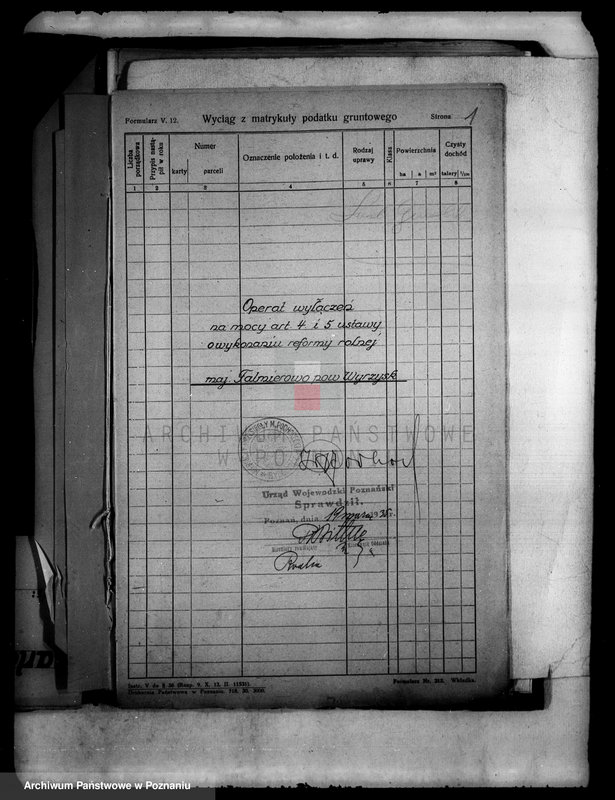 Formularz V. 12. Wyciąg z matrykuły podatku gruntowego Strona 1
Liczba porządkowa
Przypis nastąpił w roku
Numer
karty parceli
Oznaczenie położenia i t. d.
Rodzaj uprawy
Klasa
Powierzchnia
ha a m²
Czysty dochód
talary 1/100
1 2 3 4 5 6 7 8
Operat wyłączeń
na mocy art. 4 i 5 ustawy
o wykonaniu reformy rolnej
maj. Falmierowo pow Wyrzysk
ARCHIWUM PAŃSTWOWE
W POZNANIU
Urząd Wojewódzki Poznański
Sprawdził.
Poznań, dnia
Instr. V do § 36 (Rozp. 9. X. 13. II 11535).
Drukarnia Państwowa w Poznaniu. 318. 30. 3000.
Formularz Nr. 313. Wkładka.
Archiwum Państwowe w Poznaniu